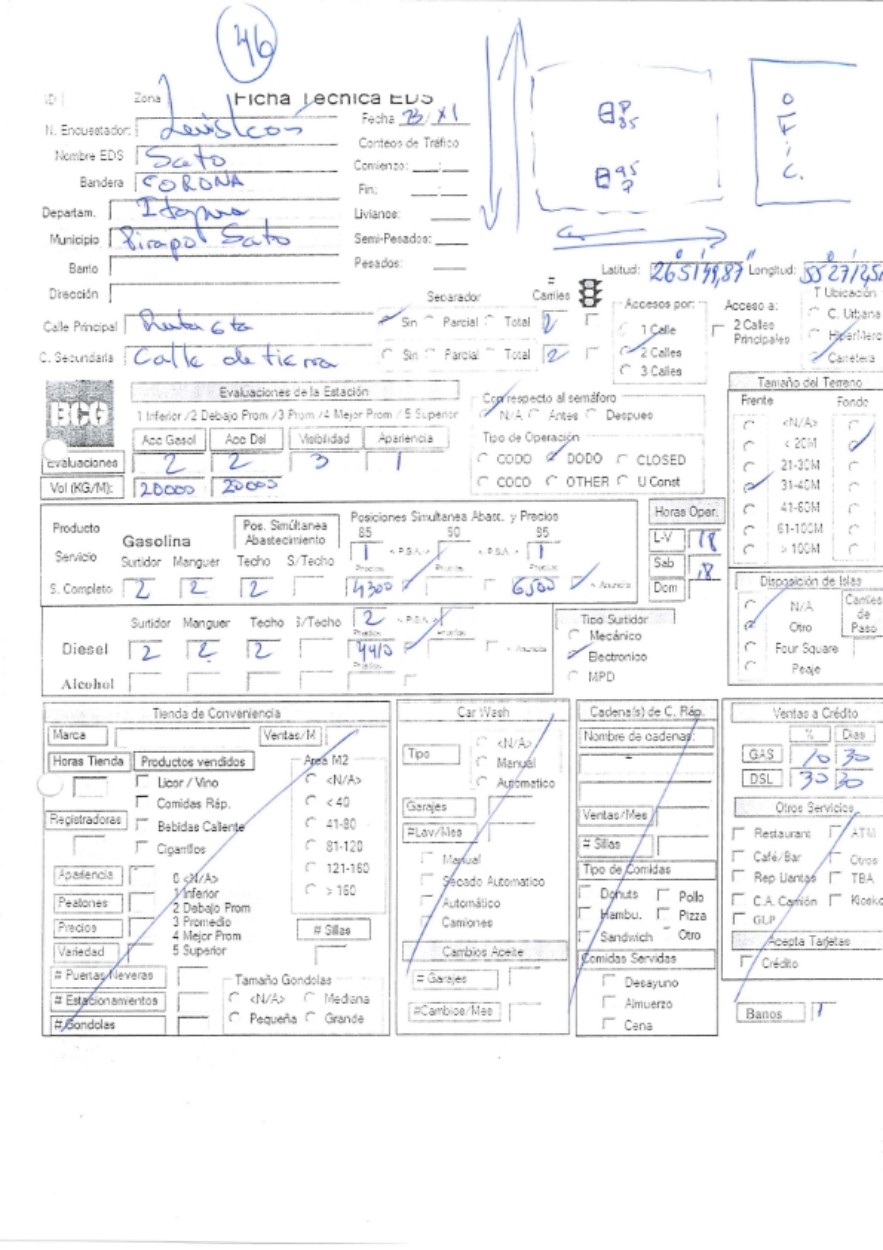 46
ID
Zona
Ficha Técnica EDS
N. Encuestador:
Fecha 23/XI
Nombre EDS Sato
Conteos de Tráfico
Bandera CORONA
Comienzo:
Fin:
Departam. Itapua
Livianos:
Municipio Pirapo Sato
Semi-Pesados:
Barrio
Pesados:
Dirección
P 85
95 P
OFIC.
Latitud: 265149,87" Longitud:
Calle Principal Ruta 6ta
Separador
# Carriles
Sin Parcial Total 2
C. Secundaria Calle de tierra
Sin Parcial Total 2
Accesos por:
1 Calle
2 Calles
3 Calles
Acceso a:
2 Calles Principales
T Ubicación
C. Urbana
HiperMerc
Carretera
BCG
Evaluaciones de la Estación
1 Inferior /2 Debajo Prom /3 Prom /4 Mejor Prom /5 Superior
Acc Gasol Acc Dsl Visibilidad Apariencia
Evaluaciones 2 2 3 1
Vol (KG/M): 20000 20000
Con respecto al semáforo
N/A Antes Despues
Tipo de Operación
CODO DODO CLOSED
COCO OTHER U Const
Tamaño del Terreno
Frente Fondo
<N/A>
< 20M
21-30M
31-40M
41-60M
61-100M
> 100M
Producto
Servicio
Gasolina
Pos. Simúltanea Abastecimiento
Posiciones Simultanea Abast. y Precios
85 90 95
1 < P.S.A. > < P.S.A. > 1
Surtidor Manguer Techo S/Techo Precios Precios Precios
S. Completo 2 2 2 4300 6,500 < Anuncia
Horas Oper.
L-V 18
Sab 18
Dom
Surtidor Manguer Techo S/Techo 2 < P.S.A. >
Precios Precios
Diesel 2 2 2 4410 < Anuncia
Precios
Alcohol
Tipo Surtidor
Mecánico
Electronico
MPD
Disposición de Islas
N/A
Otro
Four Square
Peaje
Carriles de Paso
Tienda de Conveniencia
Marca Ventas/M
Horas Tienda Productos vendidos
Licor / Vino
Comidas Ráp.
Registradoras
Bebidas Caliente
Cigarrillos
Area M2
<N/A>
< 40
41-80
81-120
121-160
> 160
Apariencia
Peatones
Precios
Variedad
0 <N/A>
1 Inferior
2 Debajo Prom
3 Promedio
4 Mejor Prom
5 Superior
# Sillas
# Puertas Neveras
# Estacionamientos
# Gondolas
Tamaño Gondolas
<N/A> Mediana
Pequeña Grande
Car Wash
Tipo
<N/A>
Manual
Automatico
Garajes
#Lav/Mes
Manual
Secado Automatico
Automático
Camiones
Cambios Aceite
# Garajes
#Cambios/Mes
Cadena(s) de C. Ráp.
Nombre de cadenas:
Ventas/Mes
# Sillas
Tipo de Comidas
Donuts Pollo
Hambu. Pizza
Sandwich Otro
Comidas Servidas
Desayuno
Almuerzo
Cena
Ventas a Crédito
% Dias
GAS 10 30
DSL 30 30
Otros Servicios
Restaurant ATM
Café/Bar Otros
Rep Llantas TBA
C.A. Camión Kiosko
GLP
Acepta Tarjetas
Crédito
Banos 1